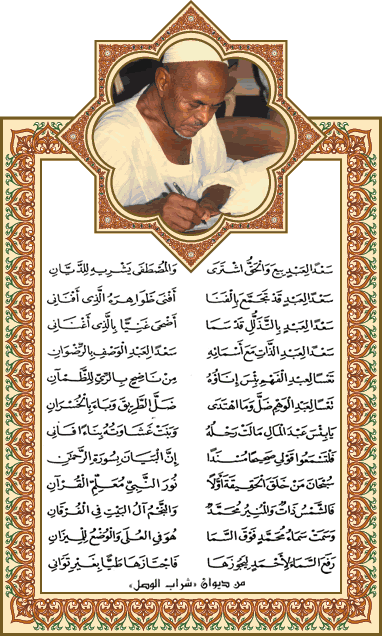 سَعْدًا لِعَبْدٍ بِيعَ وَالْحَقُّ اشْتَرَى وَالْمُصْطَفَى يَشْرِيهِ لِلدَّيَّانِ
سَعْدًا لِعَبْدٍ قَدْ تَجَمَّعَ بِالْفَنَا أَفْنَى ظَوَاهِرَهُ الَّذِي أَفَانِي
سَعْدًا لِعَبْدٍ بِالتَّذَلُّلِ قَدْ سَمَا أَضْحَى غَنِيًّا بِالَّذِي أَغْنَانِي
سَعْدًا لِعَبْدِ الذَّاتِ مَعْ أَسْمَائِهِ سَعْدًا لِعَبْدِ الْوَصْفِ بِالرِّضْوَانِ
تَعْسًا لِعَبْدِ الْفَهْمِ بِئْسَ إِنَاؤُهُ مِنْ نَاضِحٍ بِالرَّيِّ لِلظَّمْآنِ
تَعْسًا لِعَبْدِ الْوَهْمِ ضَلَّ وَمَا اهْتَدَى ضَلَّ الطَّرِيقَ وَبَاءَ بِالْخُسْرَانِ
يَا بِئْسَ عَبْدَ الْمَالِ مَالَتْ رَحْلُهُ وَبَنَتْ غَشَاوَتُهُ بِنَاءً فَانِي
فَلْتَسْمَعُوا قَوْلِي صَحِيحًا مُسْنَدًا إِنَّ الْبَيَانَ بِسُورَةِ الرَّحْمَنِ
سُبْحَانَ مَنْ خَلَقَ الْحَقِيقَةَ أَوَّلًا نُورَ النَّبِيِّ مُعَلِّمِ الْقُرْآنِ
فَالشَّمْسُ ذَاتٌ وَالْمُنِيرُ مُحَمَّدٌ وَالنَّجْمُ آلُ الْبَيْتِ فِي الْفُرْقَانِ
وَسَمَتْ سَمَاءُ مُحَمَّدٍ فَوْقَ السَّمَا هُوَ فِي الْعُلَا وَالْوَضْعُ لِلْمِيزَانِ
رَفَعَ السَّمَاءَ لِأَحْمَدٍ لِيَجُوزَهَا فَاجْتَازَهَا طَيًّا بِغَيْرِ تَوَانِي
من ديوان «شراب الوصل»